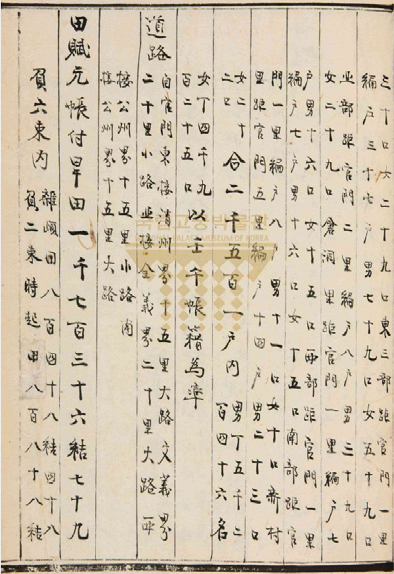 三十口女二十九口東三部距官門一里
編戶三十七戶男七十九口女五十九口
北部距官門二里編戶八戶男三十九口
女二十九口倉洞里距官門一里編戶七
戶男十六口女十五口西部距官門一里
編戶七戶男十六口女十五口南部距官
門一里編戶八戶男十一口女十口新村
里距官門五里編戶十四戶男二十三口
女二十
二口
合二千五百一戶內
男丁五千二
百四十六名
女丁四千九
百二十五口
以壬午帳籍爲準
道路
自官門東接清州界十五里大路文義界
二十里小路北接全義界二十里大路西
接公州界十五里小路南
接公州界十五里大路
田賦元帳付旱田一千七百三十六結七十九
負六束內
雜頉田八百四十八結四十八
負二束時起田八百八十八結